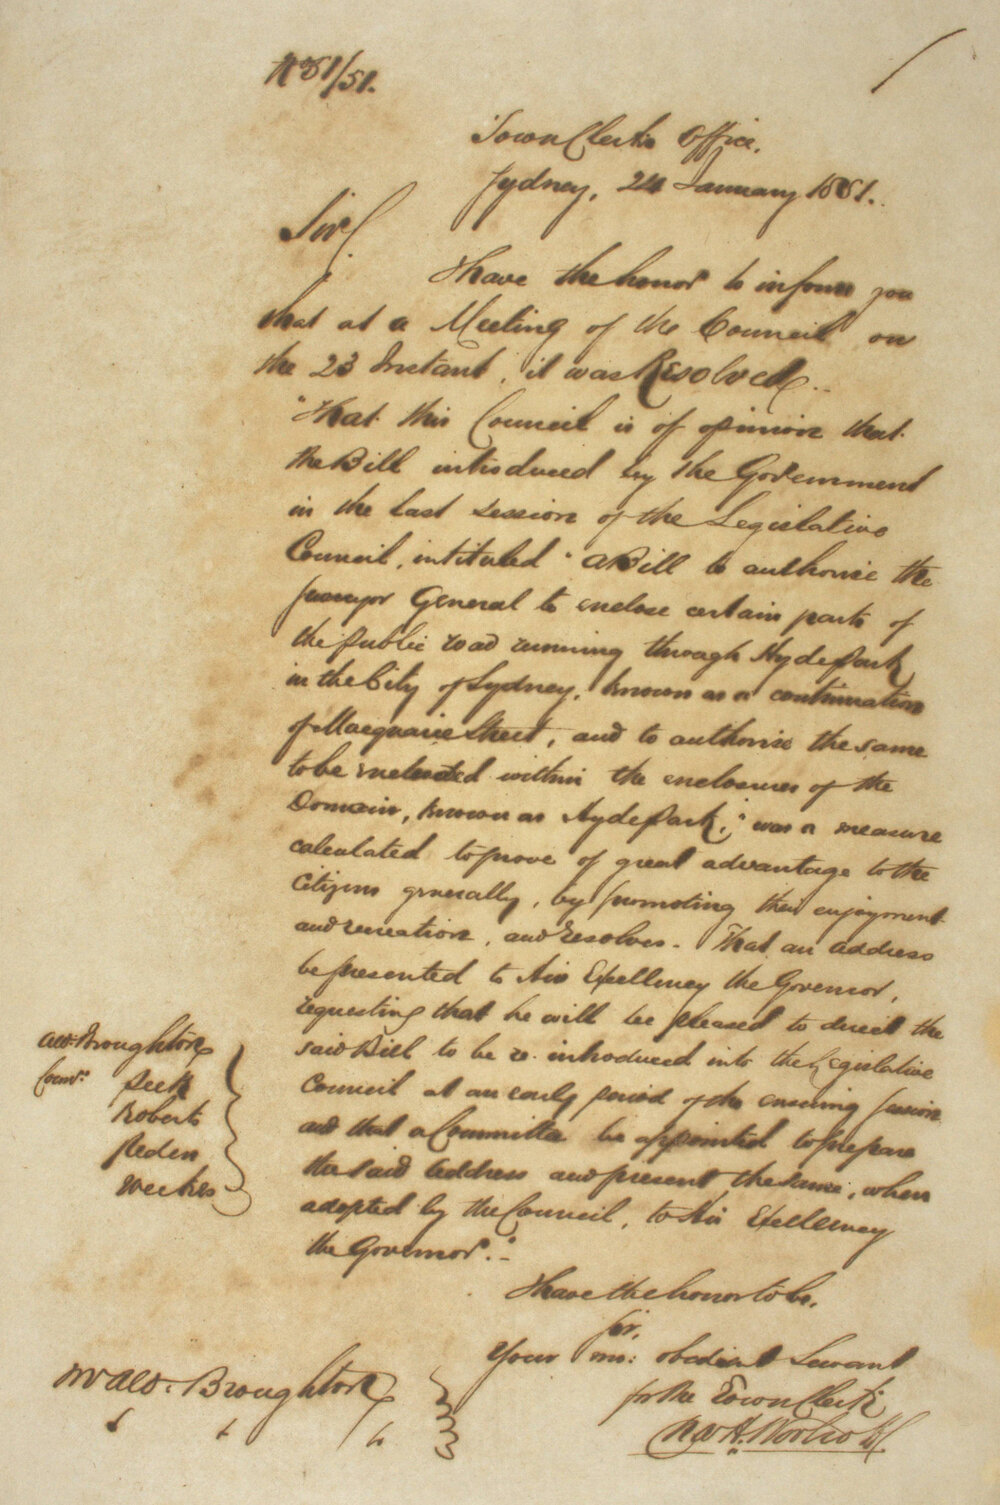 No 51/51.
Town Clerk's Office.
Sydney, 24 January 1851.
Sir,
I have the honor to inform you
that at a Meeting of the Council on
the 23 Instant, it was Resolved..
"That this Council is of opinion that
the Bill introduced by the Government
in the last session of the Legislative
Council, intituled "A Bill to authorise the
Surveyor General to enclose certain parts of
the public road running through Hyde Park
in the City of Sydney, known as a continuation
of Macquarie Street, and to authorise the same
to be included within the enclosures of the
Domain, known as Hyde Park," was a measure
calculated to prove of great advantage to the
Citizens generally, by promoting their enjoyment
and recreation, and resolves. That an address
be presented to His Excellency the Governor,
requesting that he will be pleased to direct the
said Bill to be re-introduced into the Legislative
Council at an early period of the ensuing session
and that a Committee be appointed to prepare
the said Address and present the same, when
adopted by the Council, to His Excellency
the Governor."
Ald. Broughton
Counr. Peek
Roberts
Peden
Weekes
I have the honor to be,
Sir,
Your mo: obedient Servant
for the Town Clerk
Mr Ald. Broughton